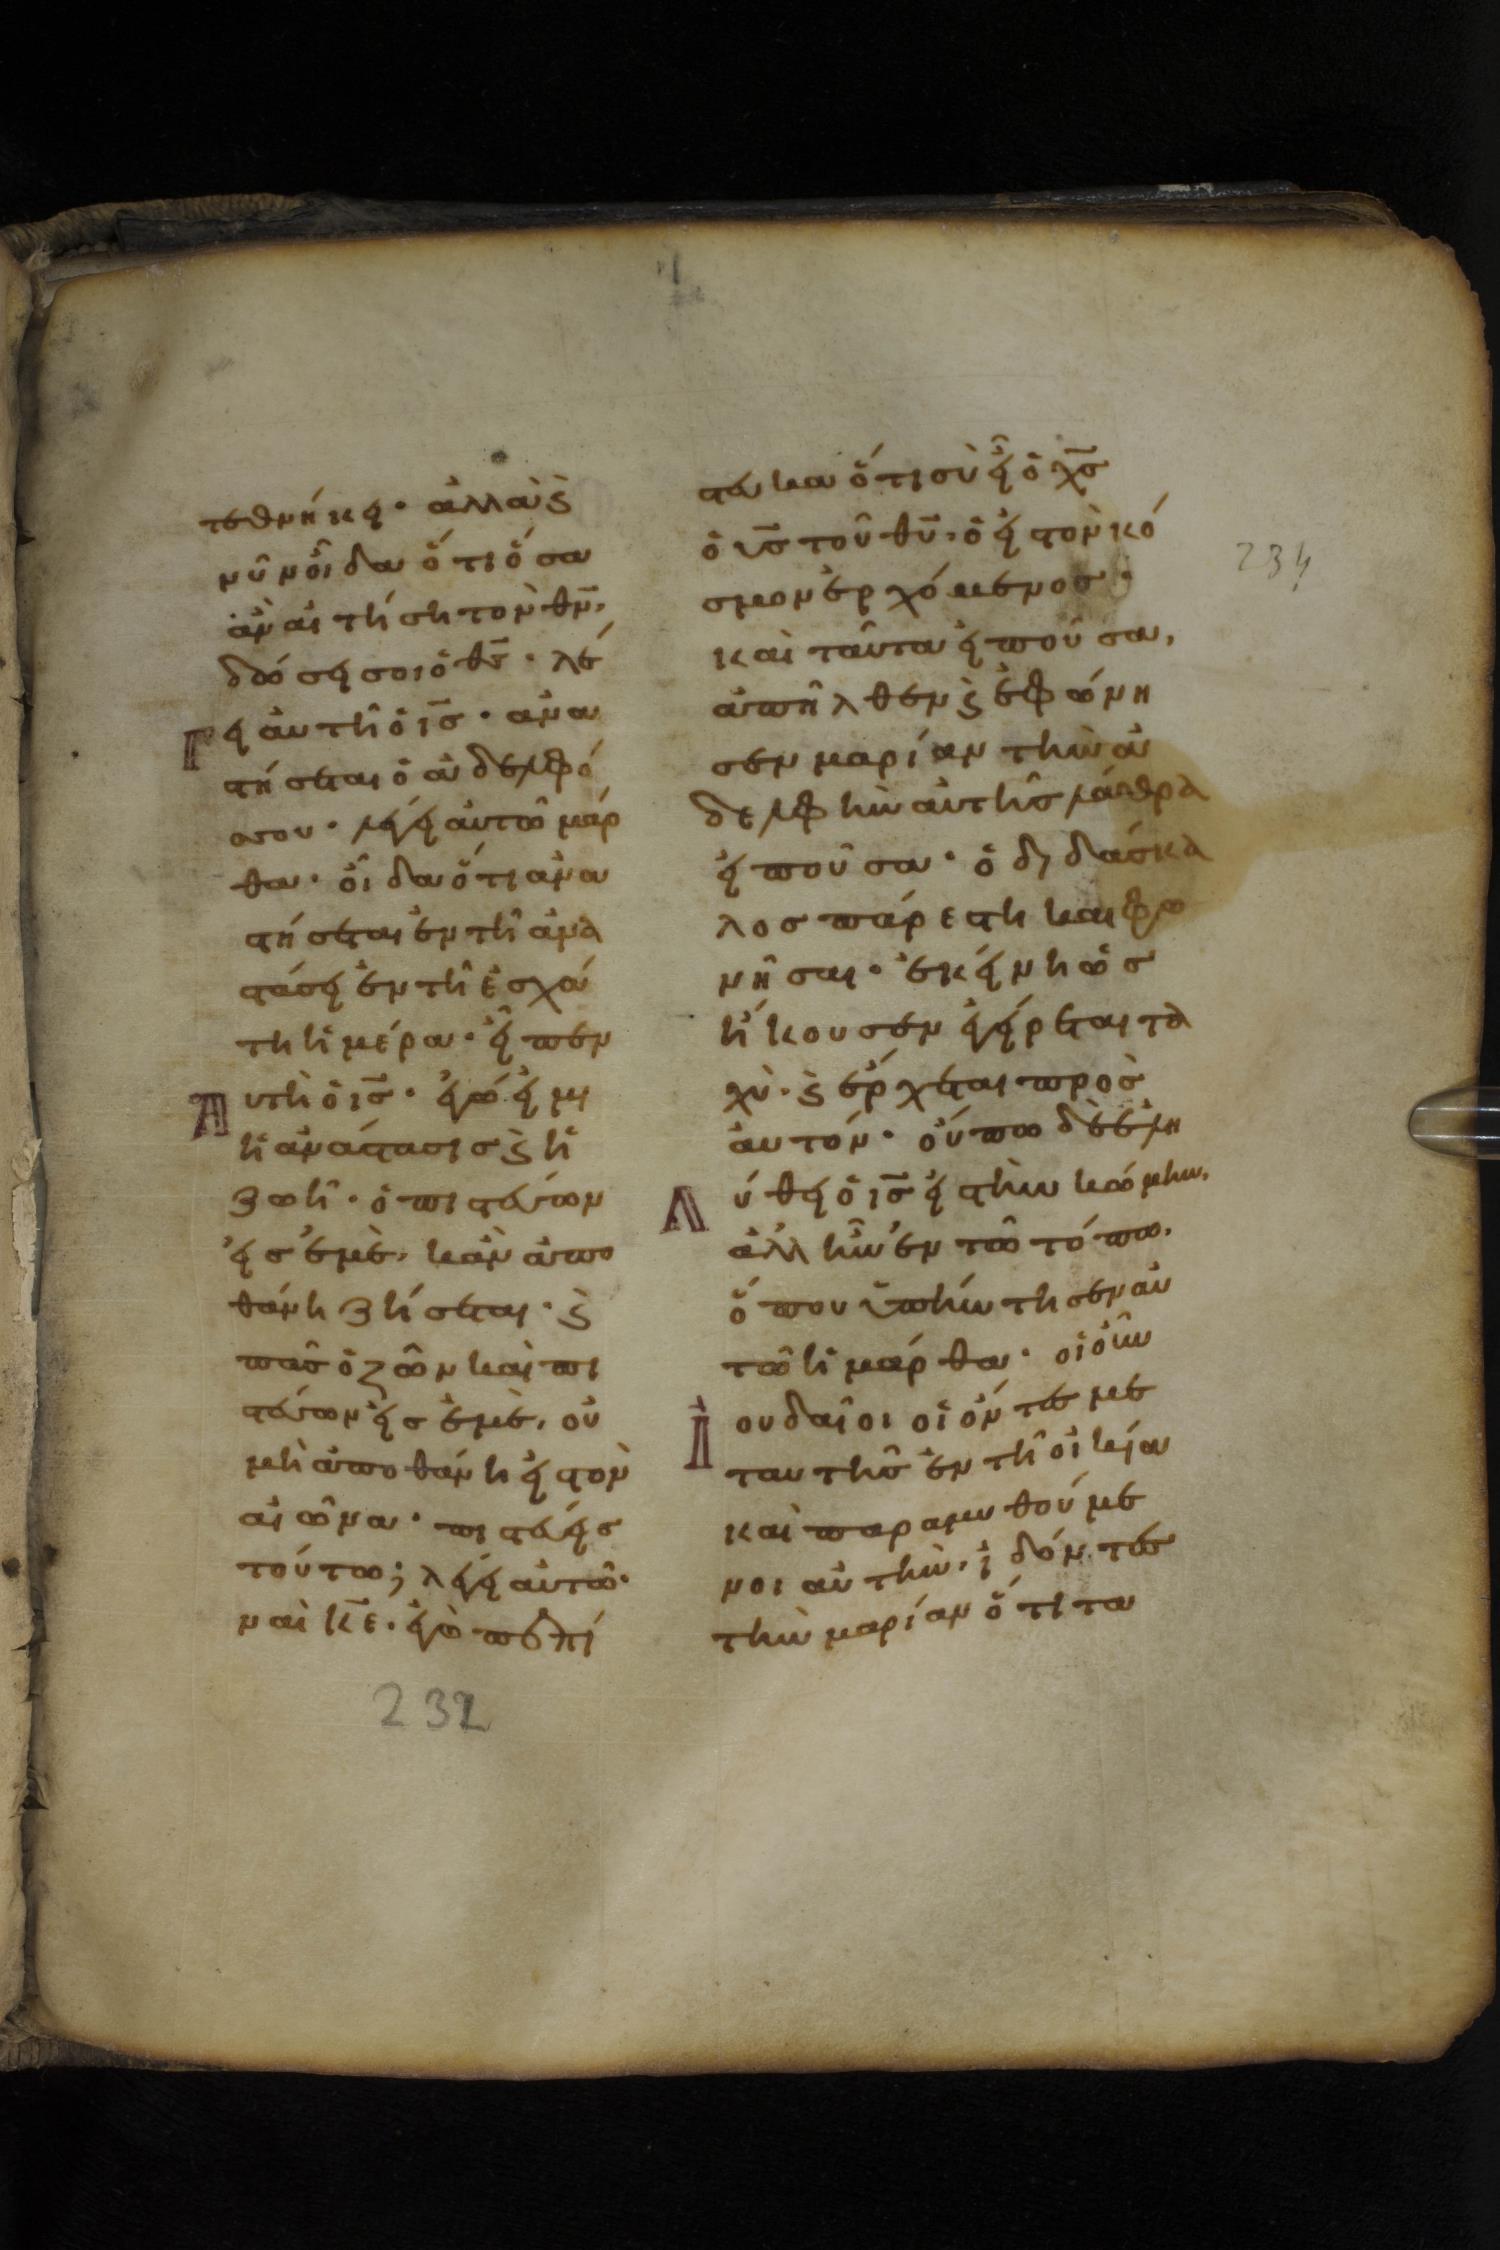 τεθνήκει· ἀλλὰ ϗ
νῦν οἶδα ὅτι ὅσα
ἂν αἰτήσῃ τὸν θν̅,
δώσει σοι ὁ θς̅· λέ
γει αὐτῇ ὁ ις̅· ἀνα
στήσεται ὁ ἀδελφό
σ σου· λέγει αὐτῷ μάρ
θα· οἶδα ὅτι ἀνα
στήσεται ἐν τῇ ἀνα
στάσει ἐν τῇ ἐσχά
τῃ ἡμέρα· εἶπεν
αυτῇ ὁ ις̅· ἐγώ εἰμι
ἡ ἀνάστασις ϗ ἡ
ζωή· ὁ πιστεύων
εἰς ἐμὲ, κἂν ἀπο
θάνῃ ζήσεται· ϗ
πᾶς ὁ ζῶν καὶ πι
στεύων εἰς ἐμὲ, οὐ
μὴ ἀποθάνῃ εἰς τὸν
αἰῶνα· πιστεύεις
τούτω; λέγει αὐτῷ·
ναὶ κε̅· ἐγὼ πεπί
στευκα ὅτι σὺ εἶ ὁ χς̅
ὁ υς̅ τοῦ θυ̅· ὁ εἰς τὸν κό
σμον ἐρχόμενος·
καὶ ταῦτα εἰποῦσα,
ἀπῆλθεν ϗ ἐφώνη
σεν μαρίαν τὴν ἀ
δελφὴν αὐτῆς λάθρα
εἰποῦσα· ὁ διδάσκα
λος πάρεστη καὶ φω
νῆσαι· ἐκείνη ὡς
ἤκουσεν ἐγείρεται τα
χὺ· ϗ ἔρχεται πρὸς
αὐτόν· οὔπω δὲ ἐλη
λύθει ὁ ις̅ εἰς τὴν κώμην,
ἀλλ ἦν ἐν τῷ τόπω,
ὅπου ὑπήντησεν αὐ
τῷ ἡ μάρθα· οἱ οὖν
ϊουδαῖοι οἱ ὄντες με
τ αυτῆς ἐν τῇ οἰκία
καὶ παραμυθούμε
νοι αὐτὴν, ἰδόντες
τὴν μαρίαν ὅτι τα
234
232